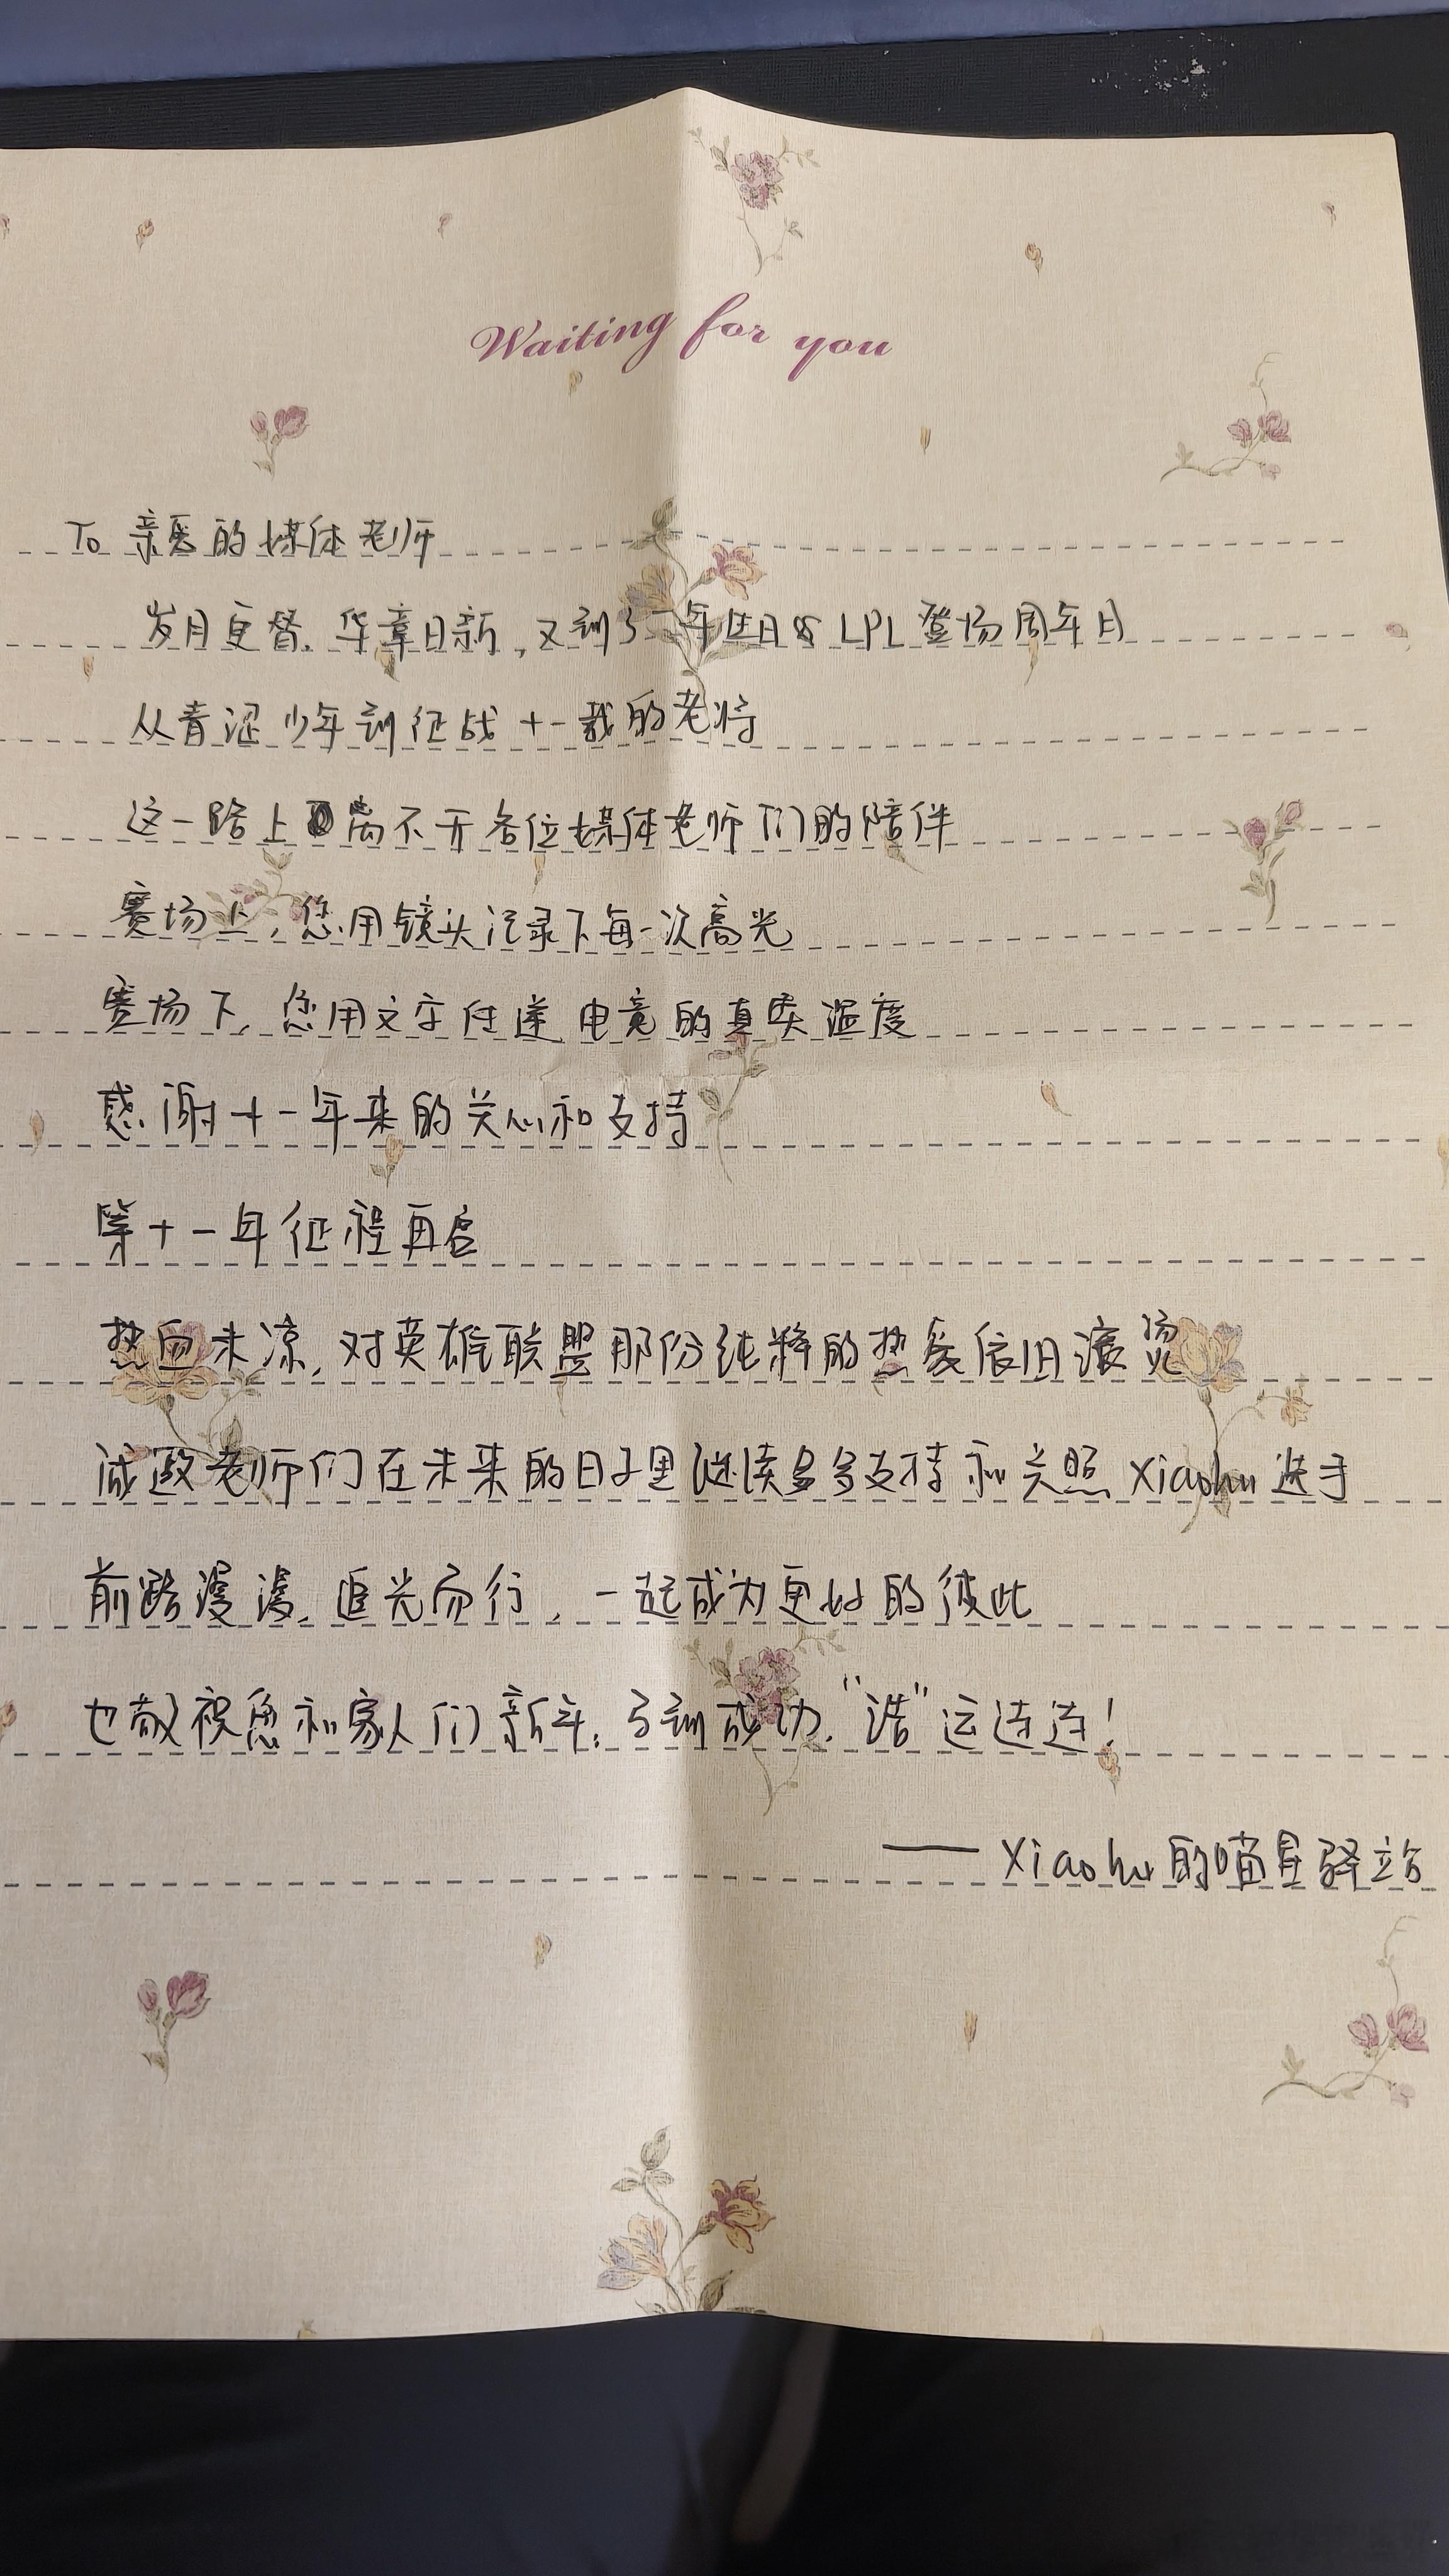 Waiting for you
To 亲爱的媒体老师
岁月更替,华章日新,又到了一年生日&LPL登场周年日
从青涩少年到征战十一载的老将
这一路上离不开各位媒体老师们的陪伴
赛场上,您用镜头记录下每一次高光
赛场下,您用文字传递电竞的真实温度
感谢十一年来的关心和支持
第十一年征程再启
热血未凉,对英雄联盟那份纯粹的热爱依旧滚烫
诚邀老师们在未来的日子里继续多多支持和关照Xiaohu选手
前路漫漫,追光而行,一起成为更好的彼此
也敬祝您和家人们新年:马到成功,“浩”运连连!
——Xiaohu的喵星驿站